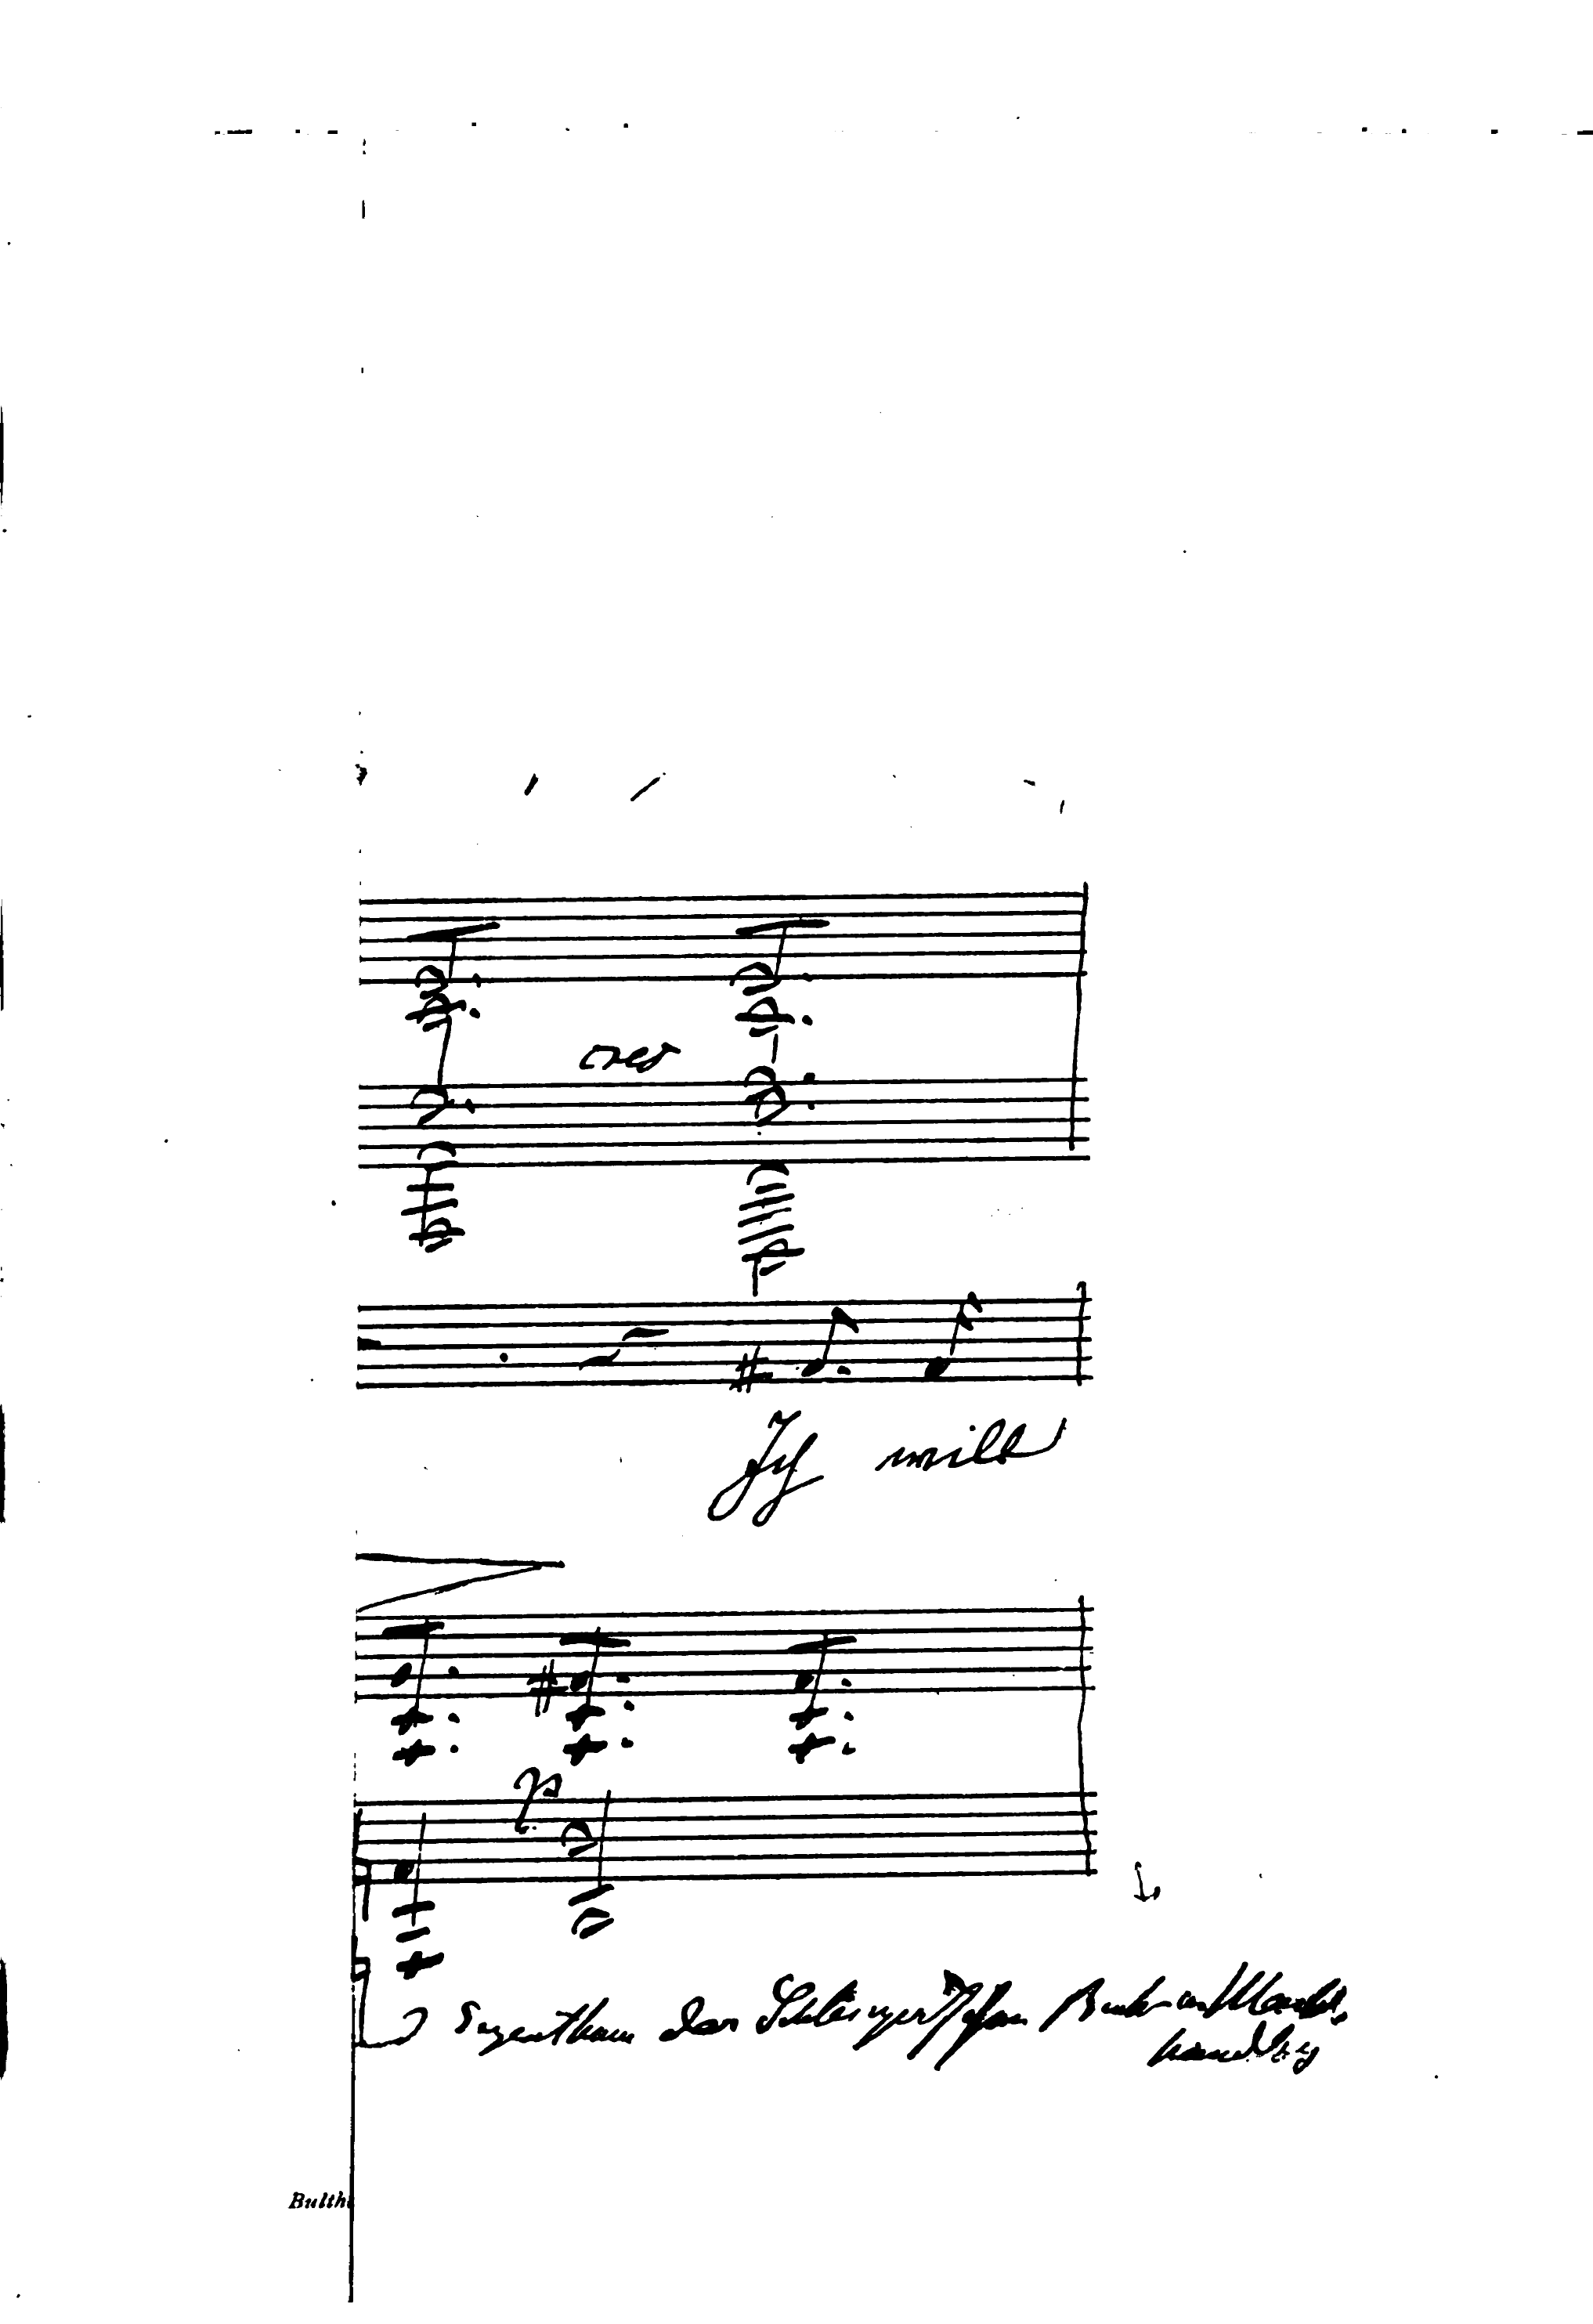 cres
Ich will
p
Eigenthum der Schlesinger'schen Buch u Musik
handlg
Bulth